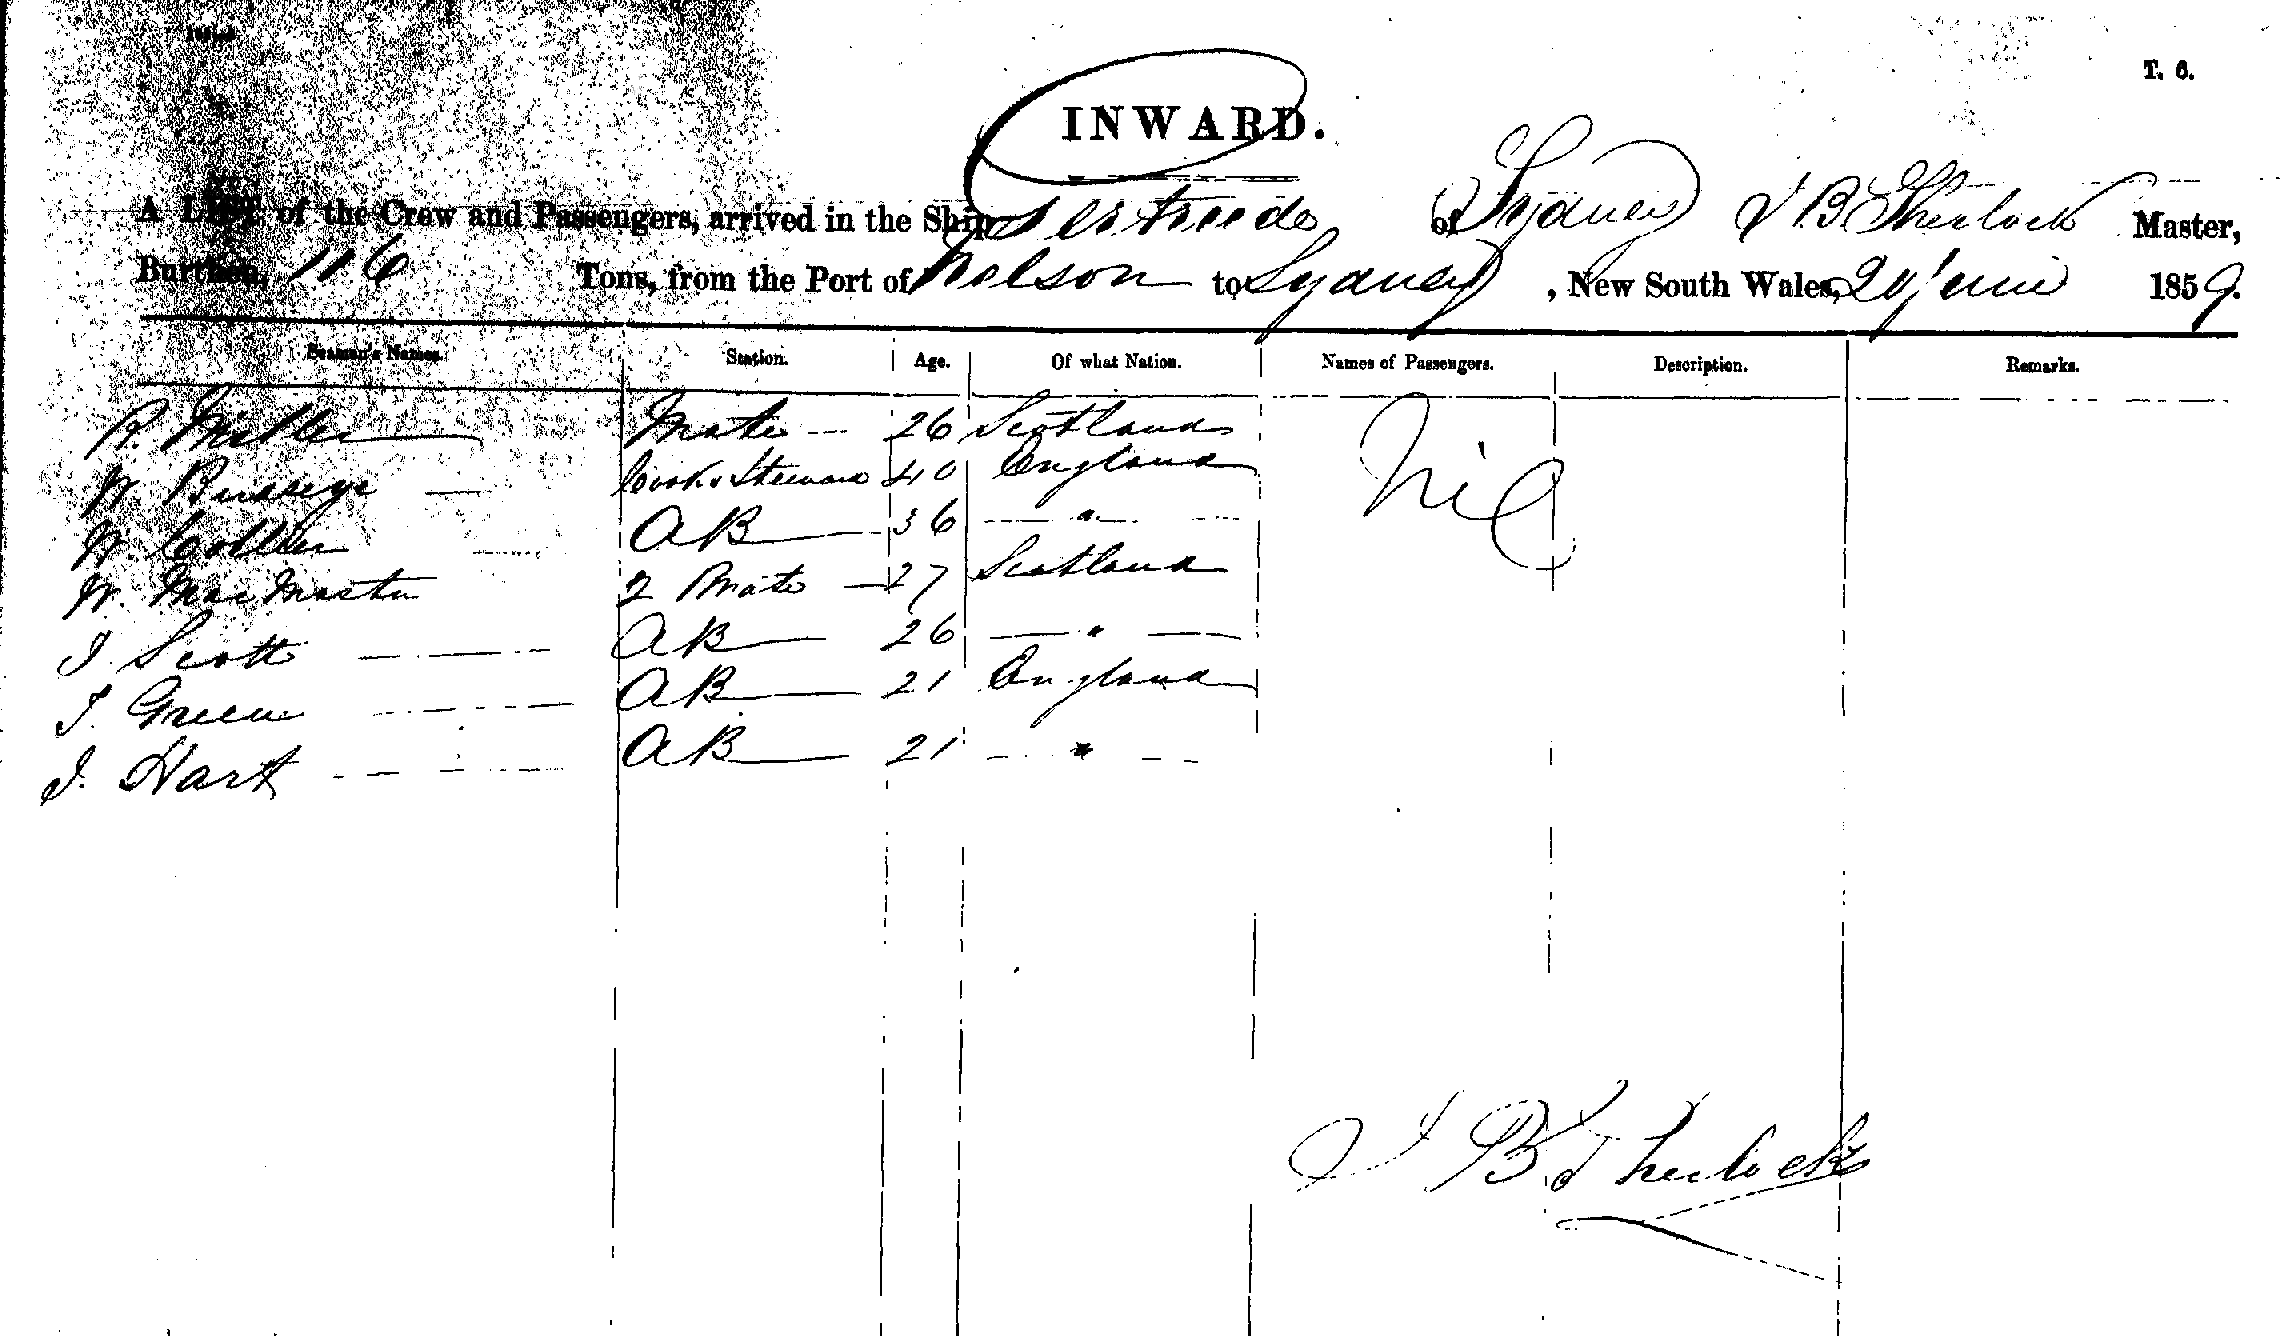 T. 6.
INWARD.
A LIST of the Crew and Passengers, arrived in the Ship Gertrude of Sydney J B Sherlock Master,
Burthen, 116 Tons, from the Port of Nelson to Sydney, New South Wales, 20 June 1859.
Seaman's Names. Station. Age. Of what Nation. Names of Passengers. Description. Remarks.
R. Miller Mate 26 Scotland Nil
W. Cook & Steward 40 England
W. Collier AB 36 "
W. MacMaster 2 Mate 27 Scotland
J. Scott AB 26 "
T. Green AB 21 England
J. Hart AB 21 "
J B Sherlock